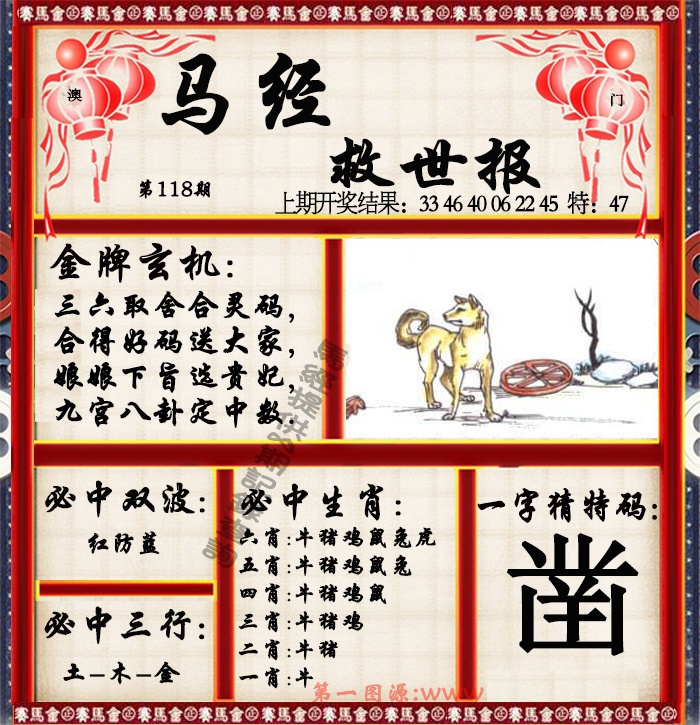 賽馬會金正賽馬會金正賽馬會金正賽馬會金正賽馬會金正賽馬會金
澳
门
马经
救世报
第118期
上期开奖结果：33 46 40 06 22 45 特：47
金牌玄机：
三六取舍合灵码，
合得好码送大家，
娘娘下旨选贵妃，
九宫八卦定中数．
必中双波：
红防蓝
必中三行：
土－木－金
必中生肖：
六肖：牛猪鸡鼠兔虎
五肖：牛猪鸡鼠兔
四肖：牛猪鸡鼠
三肖：牛猪鸡
二肖：牛猪
一肖：牛
一字猜特码：
凿
第一图源：www